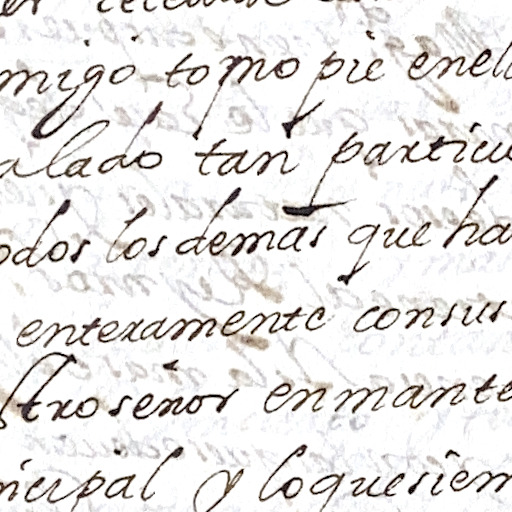 migo tomo pie enel
alado tan particu
odos los demas que ha
enteramente consus
stro señor enmante
ncipal y loquesiem